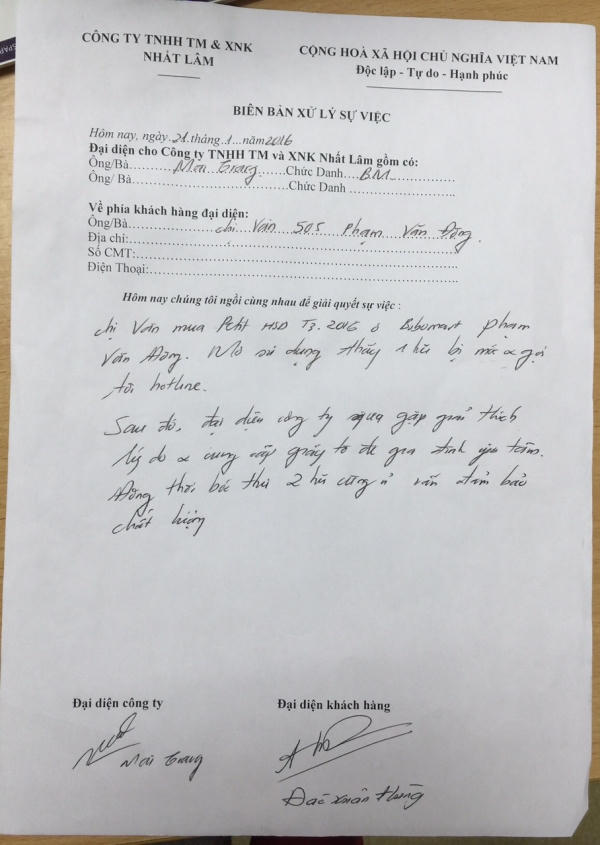 CÔNG TY TNHH TM & XNK
NHẤT LÂM
CỘNG HOÀ XÃ HỘI CHỦ NGHĨA VIỆT NAM
Độc lập - Tự do - Hạnh phúc
BIÊN BẢN XỬ LÝ SỰ VIỆC
Hôm nay, ngày 21 tháng 1 năm 2016
Đại diện cho Công ty TNHH TM và XNK Nhất Lâm gồm có:
Ông/Bà Mai Trang Chức Danh BM
Ông/ Bà Chức Danh
Về phía khách hàng đại diện:
Ông/Bà chị Vân 505 Phạm Văn Đồng.
Địa chỉ:
Số CMT:
Điện Thoại:
Hôm nay chúng tôi ngồi cùng nhau để giải quyết sự việc :
chị Vân mua Petit HSD T3.2016 ở Bibomart Phạm
Văn Đồng. Mở sử dụng thấy 1 hũ bị mốc & gọi
tới hotline.
Sau đó, đại diện công ty qua gặp giải thích
lý do & cung cấp giấy tờ để gia đình yên tâm.
Đồng thời bóc thử 2 hũ cũng vẫn đảm bảo
chất lượng
Đại diện công ty
Đại diện khách hàng
Mai Trang
Xuân